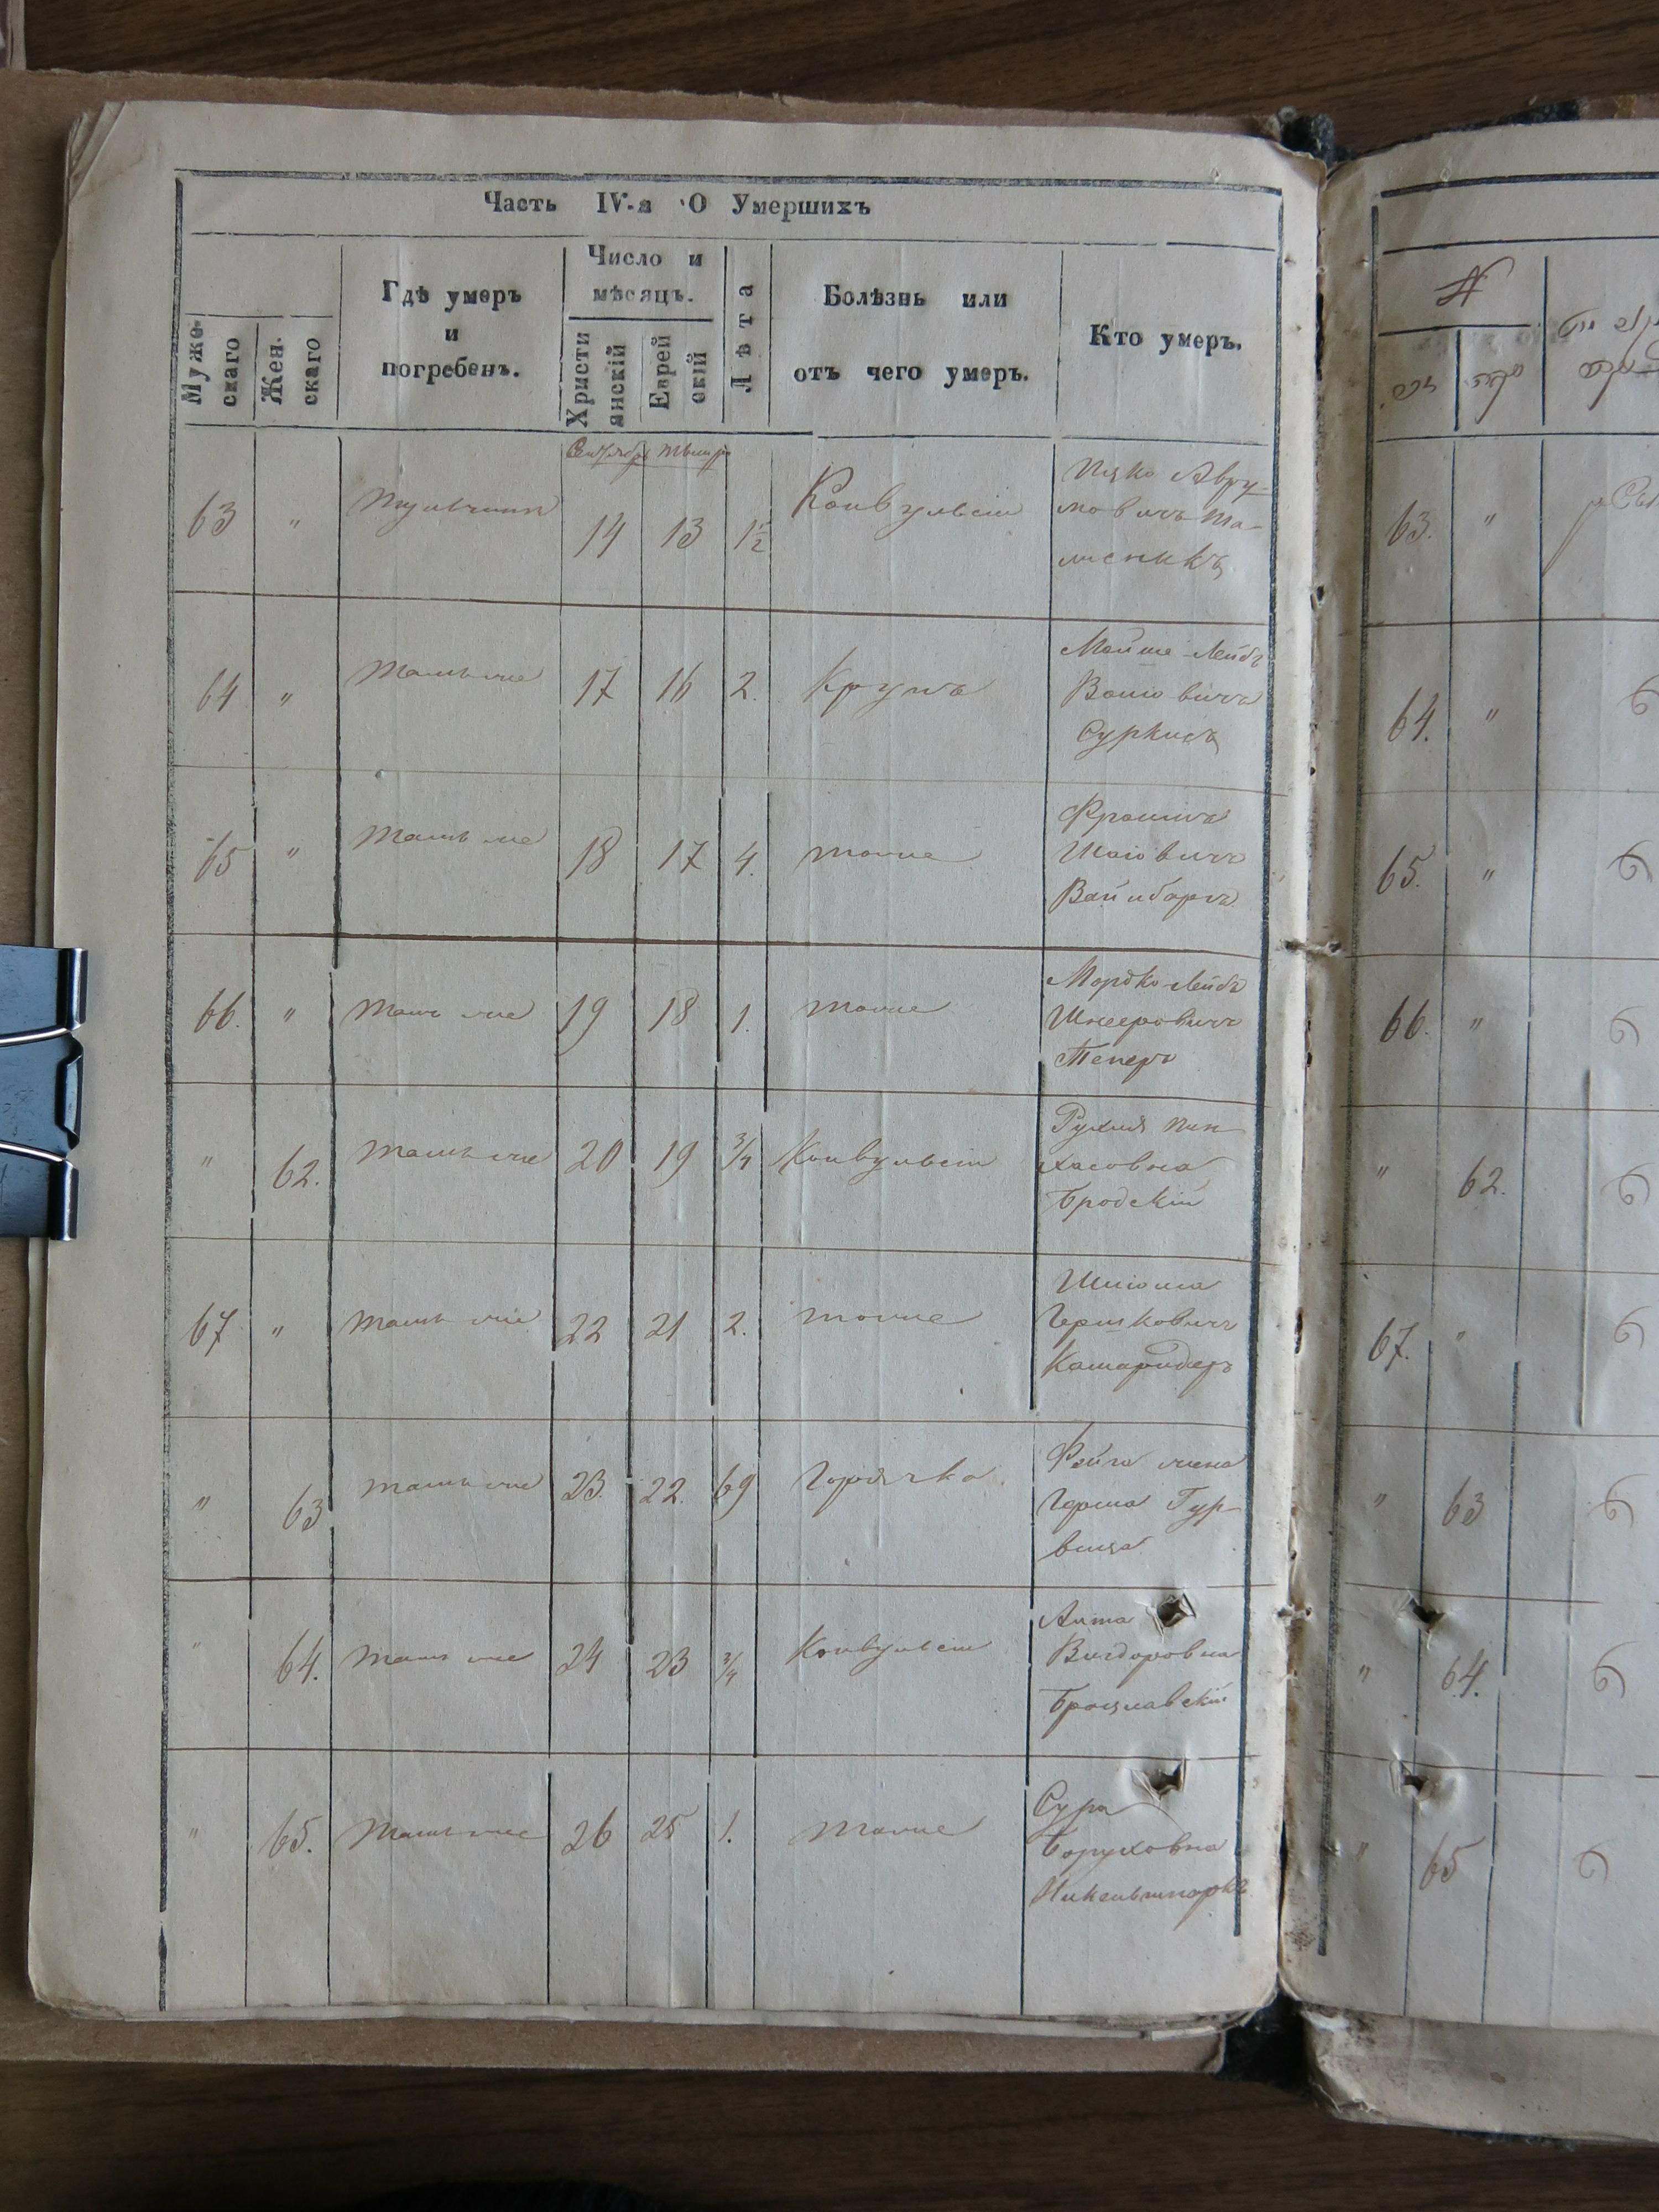 Часть IV-я О Умершихъ
Муже-
скаго
Жен-
скаго
Гдѣ умеръ
и
погребенъ.
Число и
мѣсяцъ.
Христи
анскій
Еврей
скій
Лѣта
Болѣзнь или
отъ чего умеръ.
Кто умеръ.
Сентябрь
63 " Тульчинъ 14 13 1½ Конвульсіи Ицко Авру-
мовичъ
64 " тамъ же 17 16 2. Крупъ Мойше Лейбъ
Суркисъ
65 " тамъ же 18 17 4. тоже Фроимъ
Шаіовичъ
66. " тамъ же 19 18 1. тоже Мордко Лейбъ
Шнееровичъ
Теперъ
" 62. тамъ же 20 19 ¾ Конвульсіи Рухля Пин-
хасовна
Бродскій
67 " тамъ же 22 21 2. тоже Шліома
Гершковичъ
" 63 тамъ же 23. 22. 69 Горячка Фейга жена
Герша Гур-
вица
" 64. тамъ же 24 23 ¾ Конвульсіи
Вигдоровна
Брацлавскій
" 65. тамъ же 26 25 1. тоже Сура
Боруховна
№
63. "
64. "
65. "
66. "
" 62.
67. "
" 63
" 64.
" 65